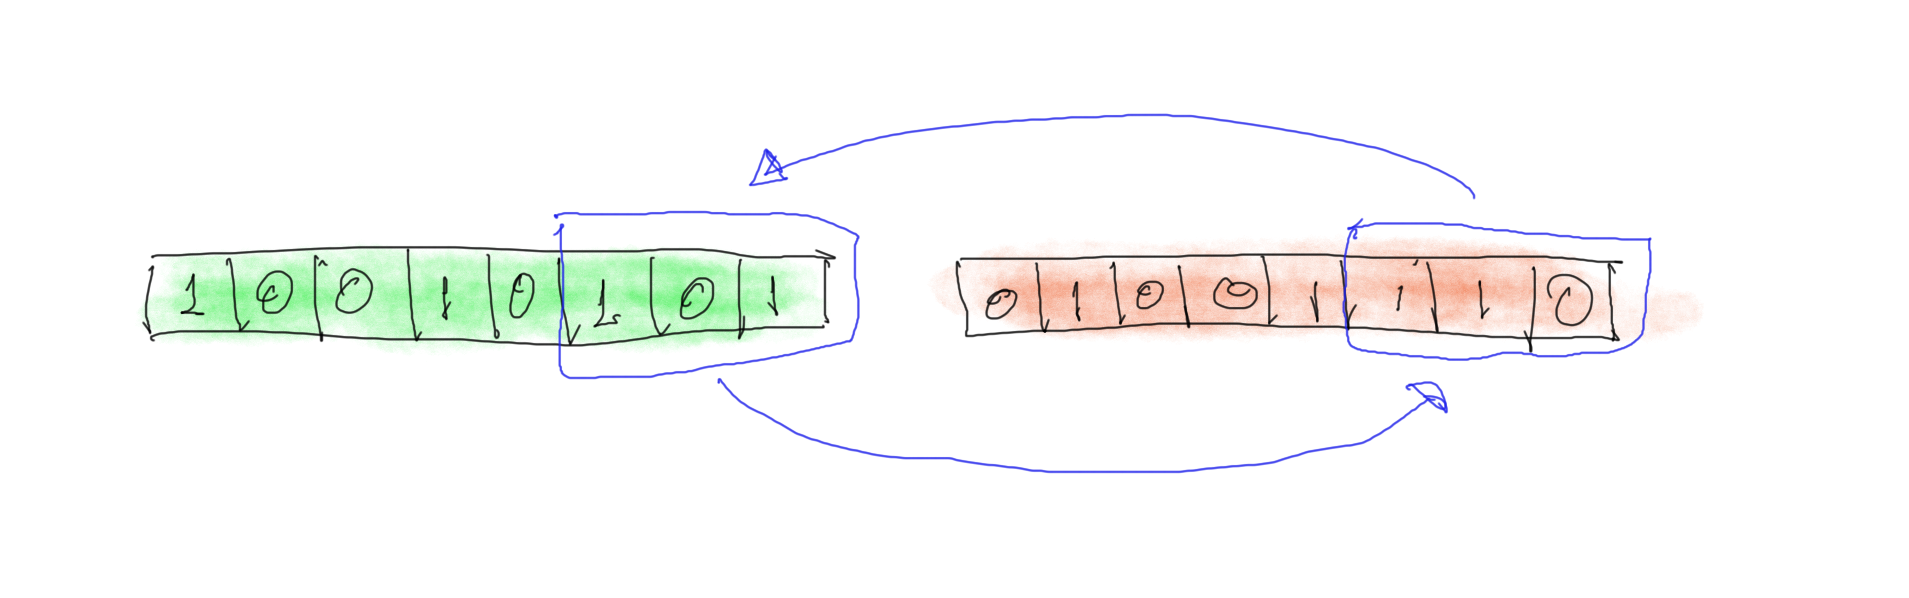 1 0 0 1 0 1 0 1 0 1 0 0 1 1 1 0